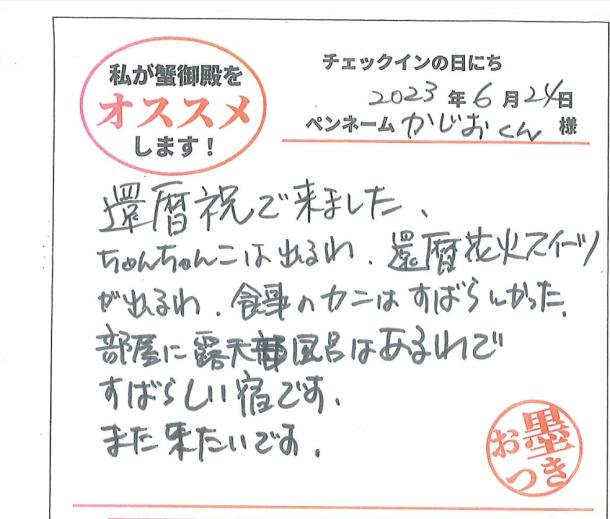 私が蟹御殿を
オススメ
します!
チェックインの日にち
2023年6月24日
ペンネーム かじおくん 様
還暦祝で来ました、
ちゃんちゃんこは出るわ、還暦花火スイーツ
が出るわ、食事のカニはすばらしかった。
部屋に露天風呂はあるわで
すばらしい宿です。
また来たいです。
お墨
つき